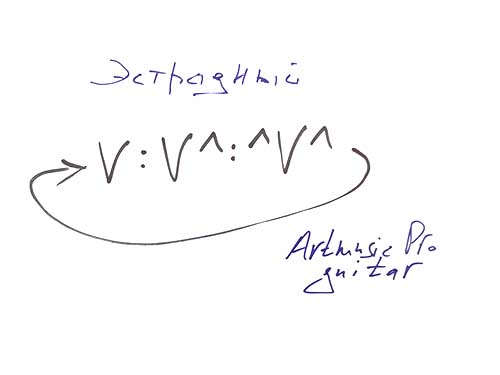 Эстрадный
V : V ^ : ^ V ^
Artmusic Pro
guitar